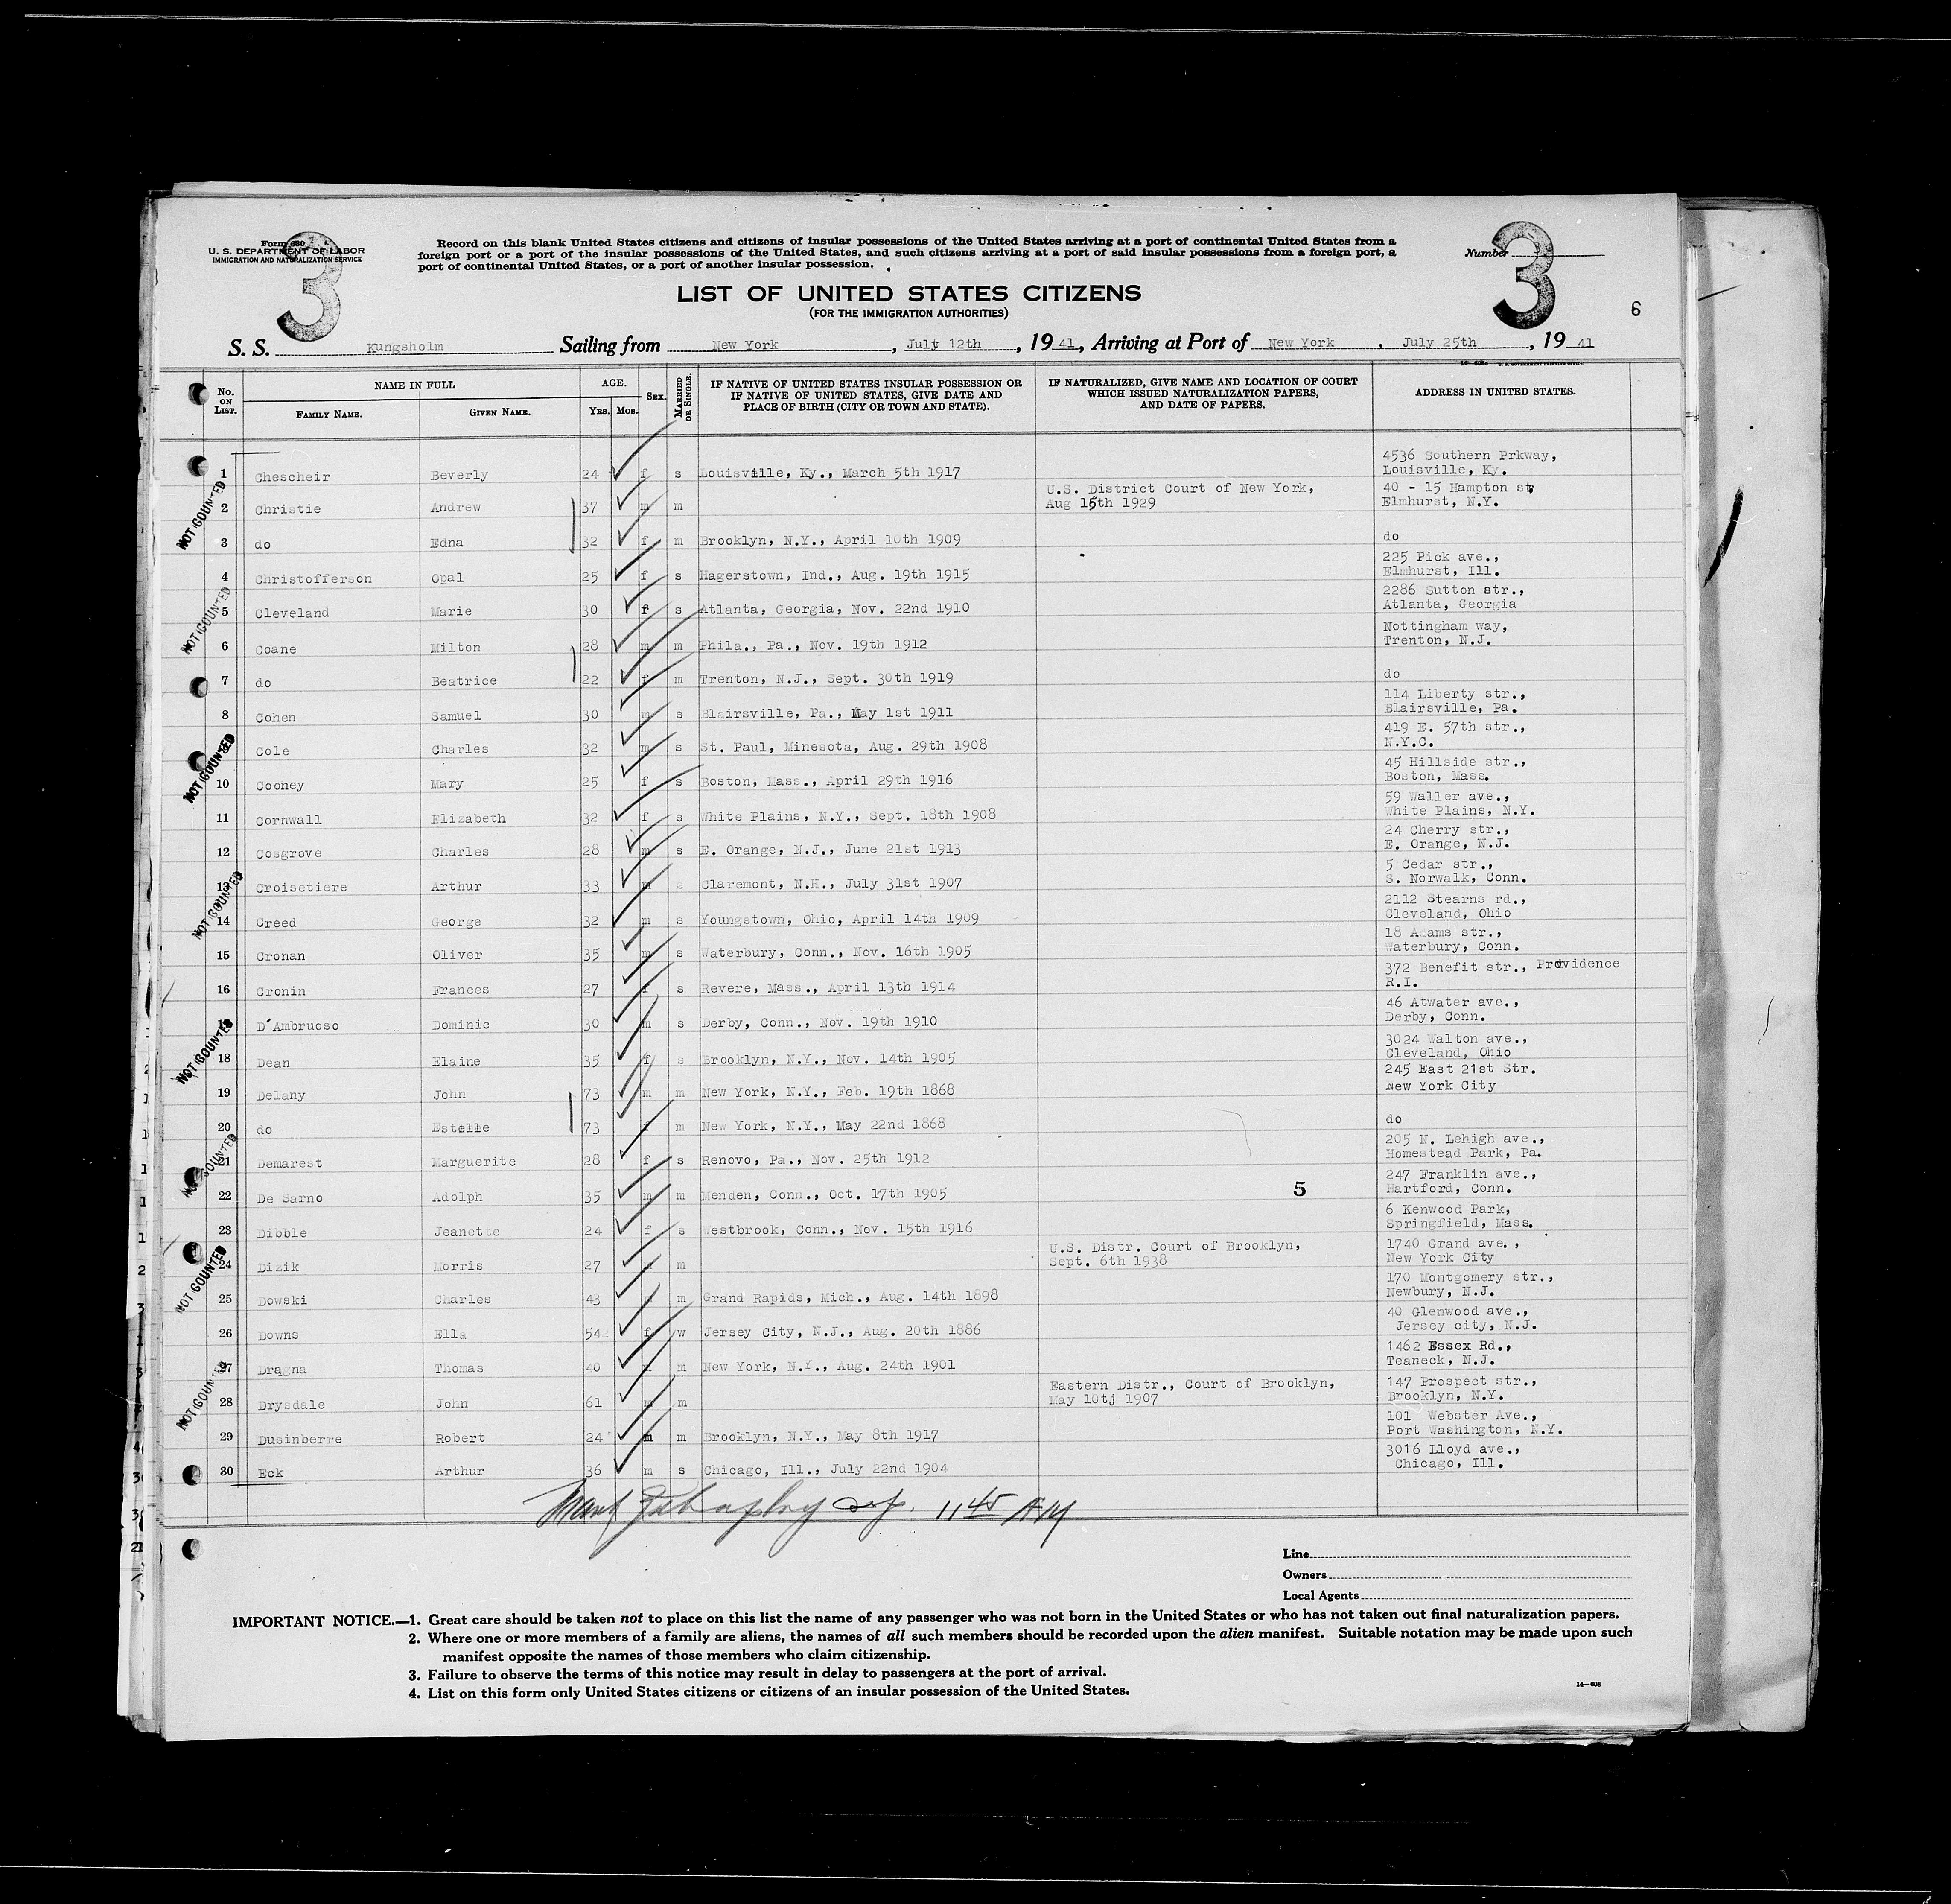 Form 630
U. S. DEPARTMENT OF LABOR
IMMIGRATION AND NATURALIZATION SERVICE
3
Record on this blank United States citizens and citizens of insular possessions of the United States arriving at a port of continental United States from a
foreign port or a port of the insular possessions of the United States, and such citizens arriving at a port of said insular possessions from a foreign port, a
port of continental United States, or a port of another insular possession.
Number
3
6
LIST OF UNITED STATES CITIZENS
(FOR THE IMMIGRATION AUTHORITIES)
S. S. Kungsholm Sailing from New York, July 12th, 1941, Arriving at Port of New York, July 25th, 1941
No. ON LIST. NAME IN FULL FAMILY NAME. GIVEN NAME. AGE. Yrs. Mos. SEX. MARRIED OR SINGLE. IF NATIVE OF UNITED STATES INSULAR POSSESSION OR IF NATIVE OF UNITED STATES, GIVE DATE AND PLACE OF BIRTH (CITY OR TOWN AND STATE). IF NATURALIZED, GIVE NAME AND LOCATION OF COURT WHICH ISSUED NATURALIZATION PAPERS, AND DATE OF PAPERS. ADDRESS IN UNITED STATES.
1 Chescheir Beverly 24 f s Louisville, Ky., March 5th 1917 4536 Southern Prkway,
Louisville, Ky.
2 Christie Andrew 37 m m U.S. District Court of New York, 40 - 15 Hampton st,
Aug 15th 1929 Elmhurst, N.Y.
3 do Edna 32 f m Brooklyn, N.Y., April 10th 1909 do
4 Christofferson Opal 25 f s Hagerstown, Ind., Aug. 19th 1915 225 Pick ave.,
Elmhurst, Ill.
5 Cleveland Marie 30 f s Atlanta, Georgia, Nov. 22nd 1910 2286 Sutton str.,
Atlanta, Georgia
6 Coane Milton 28 m m Phila., Pa., Nov. 19th 1912 Nottingham way,
Trenton, N.J.
7 do Beatrice 22 f m Trenton, N.J., Sept. 30th 1919 do
8 Cohen Samuel 30 m s Blairsville, Pa., May 1st 1911 114 Liberty str.,
Blairsville, Pa.
Cole Charles 32 m s St. Paul, Minesota, Aug. 29th 1908 419 E. 57th str.,
N.Y.C.
10 Cooney Mary 25 f s Boston, Mass., April 29th 1916 45 Hillside str.,
Boston, Mass.
11 Cornwall Elizabeth 32 f s White Plains, N.Y., Sept. 18th 1908 59 Waller ave.,
White Plains, N.Y.
12 Cosgrove Charles 28 m s E. Orange, N.J., June 21st 1913 24 Cherry str.,
E. Orange, N.J.
13 Croisetiere Arthur 33 m s Claremont, N.H., July 31st 1907 5 Cedar str.,
S. Norwalk, Conn.
14 Creed George 32 m s Youngstown, Ohio, April 14th 1909 2112 Stearns rd.,
Cleveland, Ohio
15 Cronan Oliver 35 m s Waterbury, Conn., Nov. 16th 1905 18 Adams str.,
Waterbury, Conn.
16 Cronin Frances 27 f s Revere, Mass., April 13th 1914 372 Benefit str., Providence
R.I.
D'Ambruoso Dominic 30 m s Derby, Conn., Nov. 19th 1910 46 Atwater ave.,
Derby, Conn.
18 Dean Elaine 35 f s Brooklyn, N.Y., Nov. 14th 1905 3024 Walton ave.,
Cleveland, Ohio
19 Delany John 73 m m New York, N.Y., Feb. 19th 1868 245 East 21st Str.
New York City
20 do Estelle 73 f m New York, N.Y., May 22nd 1868 do
21 Demarest Marguerite 28 f s Renovo, Pa., Nov. 25th 1912 205 N. Lehigh ave.,
Homestead Park, Pa.
22 De Sarno Adolph 35 m m Menden, Conn., Oct. 17th 1905 5 247 Franklin ave.,
Hartford, Conn.
23 Dibble Jeanette 24 f s Westbrook, Conn., Nov. 15th 1916 6 Kenwood Park,
Springfield, Mass.
24 Dizik Morris 27 m U.S. Distr. Court of Brooklyn, 1740 Grand ave.,
Sept. 6th 1938 New York City
25 Dowski Charles 43 m Grand Rapids, Mich., Aug. 14th 1898 170 Montgomery str.,
Newbury, N.J.
26 Downs Ella 54 f w Jersey City, N.J., Aug. 20th 1886 40 Glenwood ave.,
Jersey city, N.J.
27 Dragna Thomas 40 m New York, N.Y., Aug. 24th 1901 1462 Essex Rd.,
Teaneck, N.J.
28 Drysdale John 61 m Eastern Distr., Court of Brooklyn, 147 Prospect str.,
May 10tj 1907 Brooklyn, N.Y.
29 Dusinberre Robert 24 m m Brooklyn, N.Y., May 8th 1917 101 Webster Ave.,
Port Washington, N.Y.
30 Eck Arthur 36 m s Chicago, Ill., July 22nd 1904 3016 Lloyd ave.,
Chicago, Ill.
NOT COUNTED
NOT COUNTED
NOT COUNTED
NOT COUNTED
NOT COUNTED
NOT COUNTED
NOT COUNTED
NOT COUNTED
11 45 AM
Line
Owners
Local Agents
IMPORTANT NOTICE.—1. Great care should be taken not to place on this list the name of any passenger who was not born in the United States or who has not taken out final naturalization papers.
2. Where one or more members of a family are aliens, the names of all such members should be recorded upon the alien manifest. Suitable notation may be made upon such
manifest opposite the names of those members who claim citizenship.
3. Failure to observe the terms of this notice may result in delay to passengers at the port of arrival.
4. List on this form only United States citizens or citizens of an insular possession of the United States.